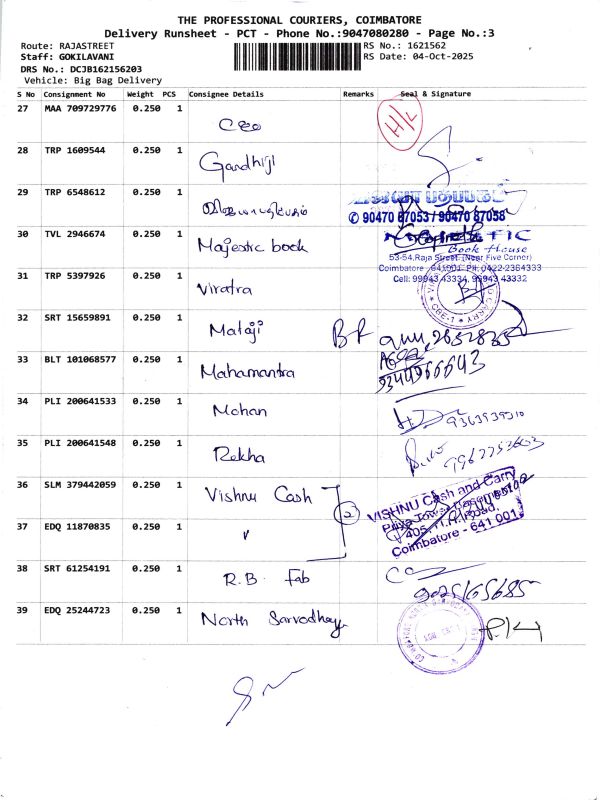 THE PROFESSIONAL COURIERS, COIMBATORE
Delivery Runsheet - PCT - Phone No.:9047080280 - Page No.:3
Route: RAJASTREET
RS No.: 1621562
Staff: GOKILAVANI
RS Date: 04-Oct-2025
DRS No.: DCJB162156203
Vehicle: Big Bag Delivery
S No Consignment No Weight PCS Consignee Details Remarks Seal & Signature
27 MAA 709729776 0.250 1 Ceo H/L
28 TRP 1609544 0.250 1 Gandhiji
29 TRP 6548612 0.250 1
✆ 90470 87053 / 90470 87058
30 TVL 2946674 0.250 1 Majestic book
Book House
53-54, Raja Street, (Near Five Corner)
Coimbatore - 641 001. PH: 0422-2364333
Cell: 99943 43334, 99943 43332
31 TRP 5397926 0.250 1 Viratra
32 SRT 15659891 0.250 1 Mataji
33 BLT 101068577 0.250 1 Mahamantra
9344966643
34 PLI 200641533 0.250 1 Mohan
9363939310
35 PLI 200641548 0.250 1 Rekha
36 SLM 379442059 0.250 1 Vishnu Cash
2
VISHNU Cash and Carry
405, H.A. Road,
Coimbatore - 641 001.
37 EDQ 11870835 0.250 1 "
38 SRT 61254191 0.250 1 R.B. Fab
39 EDQ 25244723 0.250 1 North Sarvodhaya